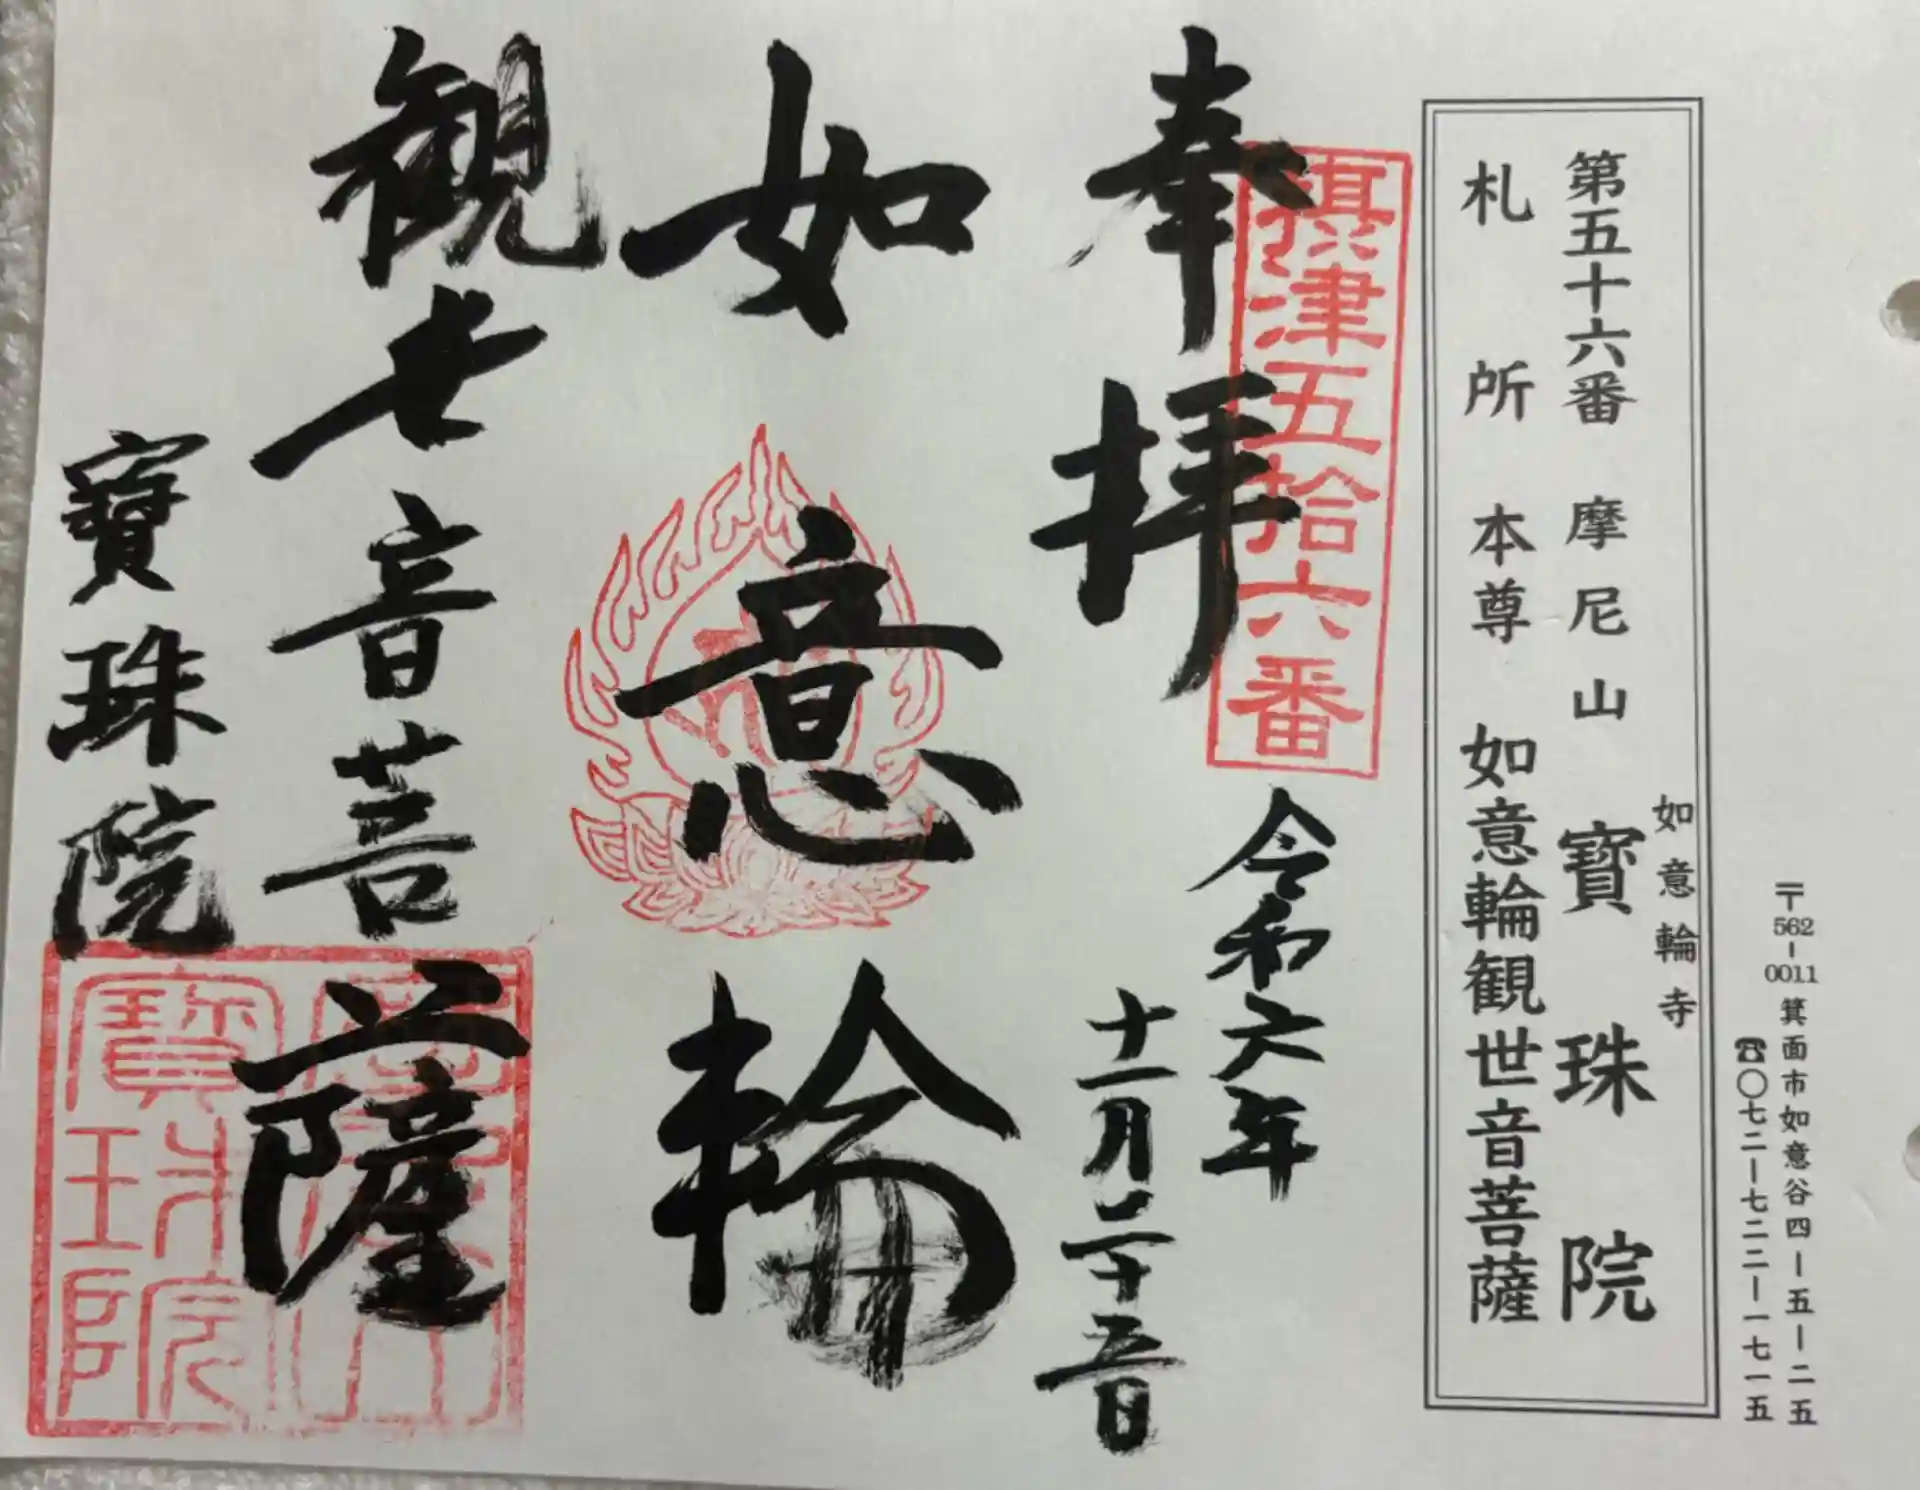 〒562-0011 箕面市如意谷四ー五ー二五
☎〇七二ー七二二ー一七一五
如意輪寺
第五十六番 摩尼山 寳珠院
札所本尊 如意輪観世音菩薩
摂津五拾六番
奉拝
令和六年
十一月二十五日
如意輪
観世音菩薩
寳珠院
寳珠院